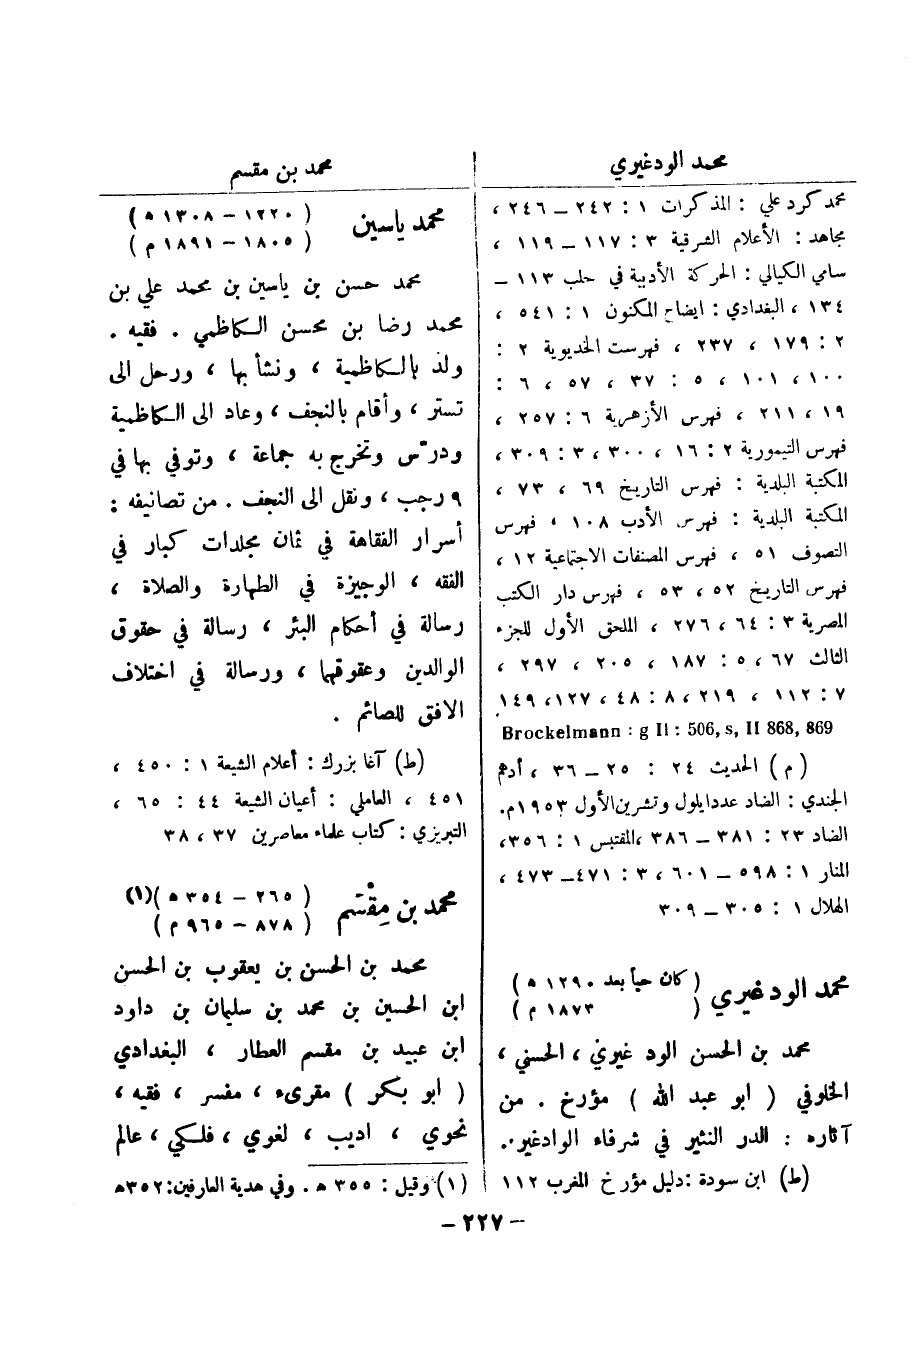 محمد الودغيري
محمد كرد علي : المذكرات ١ : ٢٤٢ – ٢٤٦ ،
مجاهد : الأعلام الشرقية ٣ : ١١٧ – ١١٩ ،
سامي الكيالي : الحركة الأدبية في حلب ١١٣ –
١٣٤ ، البغدادي : ايضاح المكنون ١ : ٥٤١ ،
٢ : ١٧٩ ، ٢٣٧ ، فهرست الخديوية ٢ :
١٠٠ ، ١٠١ ، ٥ : ٣٧ ، ٥٧ ، ٦ :
١٩ ، ٢١١ ، فهرس الأزهرية ٦ : ٢٥٧ ،
فهرس التيمورية ٢ : ١٦ ، ٣٠٠ ، ٣ : ٣٠٩ ،
المكتبة البلدية : فهرس التاريخ ٦٩ ، ٧٣ ،
المكتبة البلدية : فهرس الأدب ١٠٨ ، فهرس
التصوف ٥١ ، فهرس المصنفات الاجتماعية ١٢ ،
فهرس التاريخ ٥٢ ، ٥٣ ، فهرس دار الكتب
المصرية ٣ : ٦٤ ، ٢٧٦ ، الملحق الأول للجزء
الثالث ٦٧ ، ٥ : ١٨٧ ، ٢٠٥ ، ٢٩٧ ،
٧ : ١١٢ ، ٢١٩ ، ٨ : ٤٨ ، ١٢٧ ، ١٤٩
Brockelmann : g II : 506, s, II 868, 869
( م ) الحديث ٢٤ : ٢٥ – ٣٦ ، أدهم
الجندي : الضاد عدد ايلول وتشرين الأول ١٩٥٣م.
الضاد ٢٣ : ٣٨١ – ٣٨٦ ، المقتبس ١ : ٣٥٦ ،
المنار ١ : ٥٩٨ – ٦٠١ ، ٣ : ٤٧١ – ٤٧٣ ،
الهلال ١ : ٣٠٥ – ٣٠٩
محمد الودغيري ( كان حياً بعد ١٢٩٠ ه )
( ١٨٧٣ م )
محمد بن الحسن الود غيري ، الحسني ،
الخلوفي ( ابو عبد الله ) مؤرخ . من
آثاره : الدر النثير في شرفاء الوادغير .
(ط) ابن سودة : دليل مؤرخ المغرب ١١٢
محمد بن مقسم
محمد ياسين ( ١٢٢٠ – ١٣٠٨ ه )
( ١٨٠٥ – ١٨٩١ م )
محمد حسن بن ياسين بن محمد علي بن
محمد رضا بن محسن الكاظمي . فقيه .
ولد بالكاظمية ، ونشأ بها ، ورحل الى
تستر ، وأقام بالنجف ، وعاد الى الكاظمية
ودرّس وتخرج به جماعة ، وتوفي بها في
٩ رجب ، ونقل الى النجف . من تصانيفه :
أسرار الفقاهة في ثمان مجلدات كبار في
الفقه ، الوجيزة في الطهارة والصلاة ،
رسالة في أحكام البئر ، رسالة في حقوق
الوالدين وعقوقها ، ورسالة في اختلاف
الافق للصائم .
(ط) آغا بزرك : أعلام الشيعة ١ : ٤٥٠ ،
٤٥١ ، العاملي : أعيان الشيعة ٤٤ : ٦٥ ،
التبريزي : كتاب علماء معاصرين ٣٧ ، ٣٨
محمد بن مِقْسَم ( ٢٦٥ – ٣٥٤ ه )(١)
( ٨٧٨ – ٩٦٥ م )
محمد بن الحسن بن يعقوب بن الحسن
ابن الحسين بن محمد بن سليمان بن داود
ابن عبيد بن مقسم العطار ، البغدادي
( ابو بكر ) مقرىء ، مفسر ، فقيه ،
نحوي ، اديب ، لغوي ، فلكي ، عالم
(١) وقيل : ٣٥٥ ه . وفي هدية العارفين: ٣٥٢ه
– ٢٢٧ –